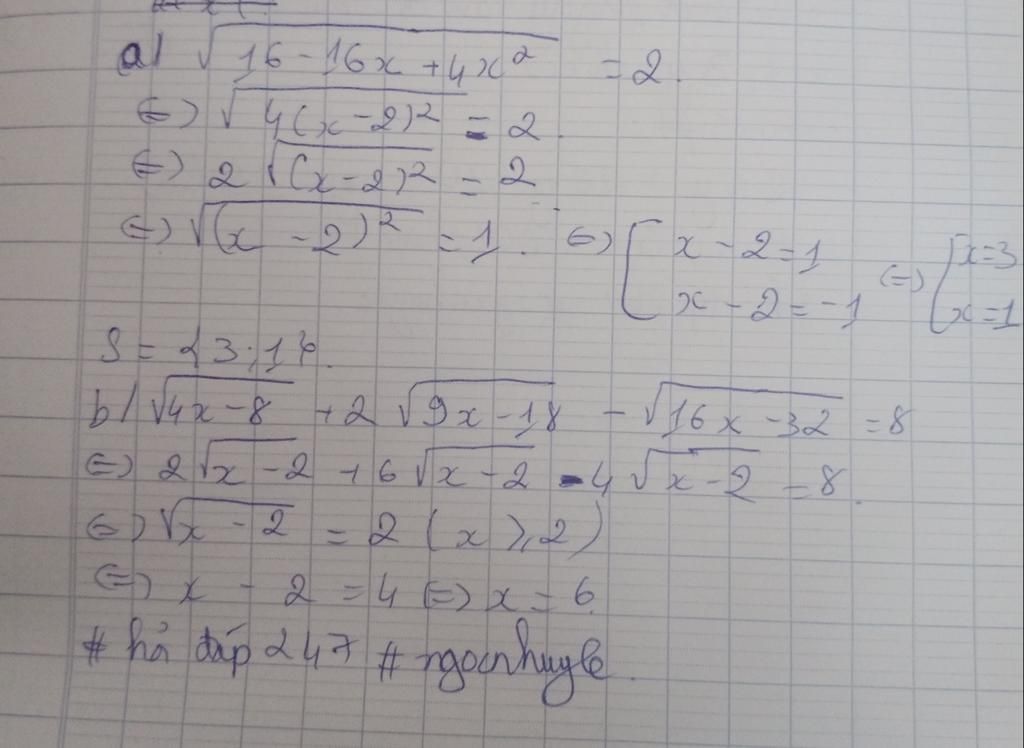 a) √(16 - 16x + 4x²) = 2.
⇔) √(4(x - 2)²) = 2.
⇔) 2 √((x - 2)²) = 2
⇔) √((x - 2)²) = 1. ⇔) [ x - 2 = 1 ; x - 2 = -1 ⇔) [ x = 3 ; x = 1
S = {3; 1}.
b) √(4x - 8) + 2 √(9x - 18) - √(16x - 32) = 8
⇔) 2 √(x - 2) + 6 √(x - 2) - 4 √(x - 2) = 8.
⇔) √(x - 2) = 2 (x ≥ 2)
⇔) x - 2 = 4 ⇔) x = 6.
# hỏi đáp 247 # ngocnhuyle.